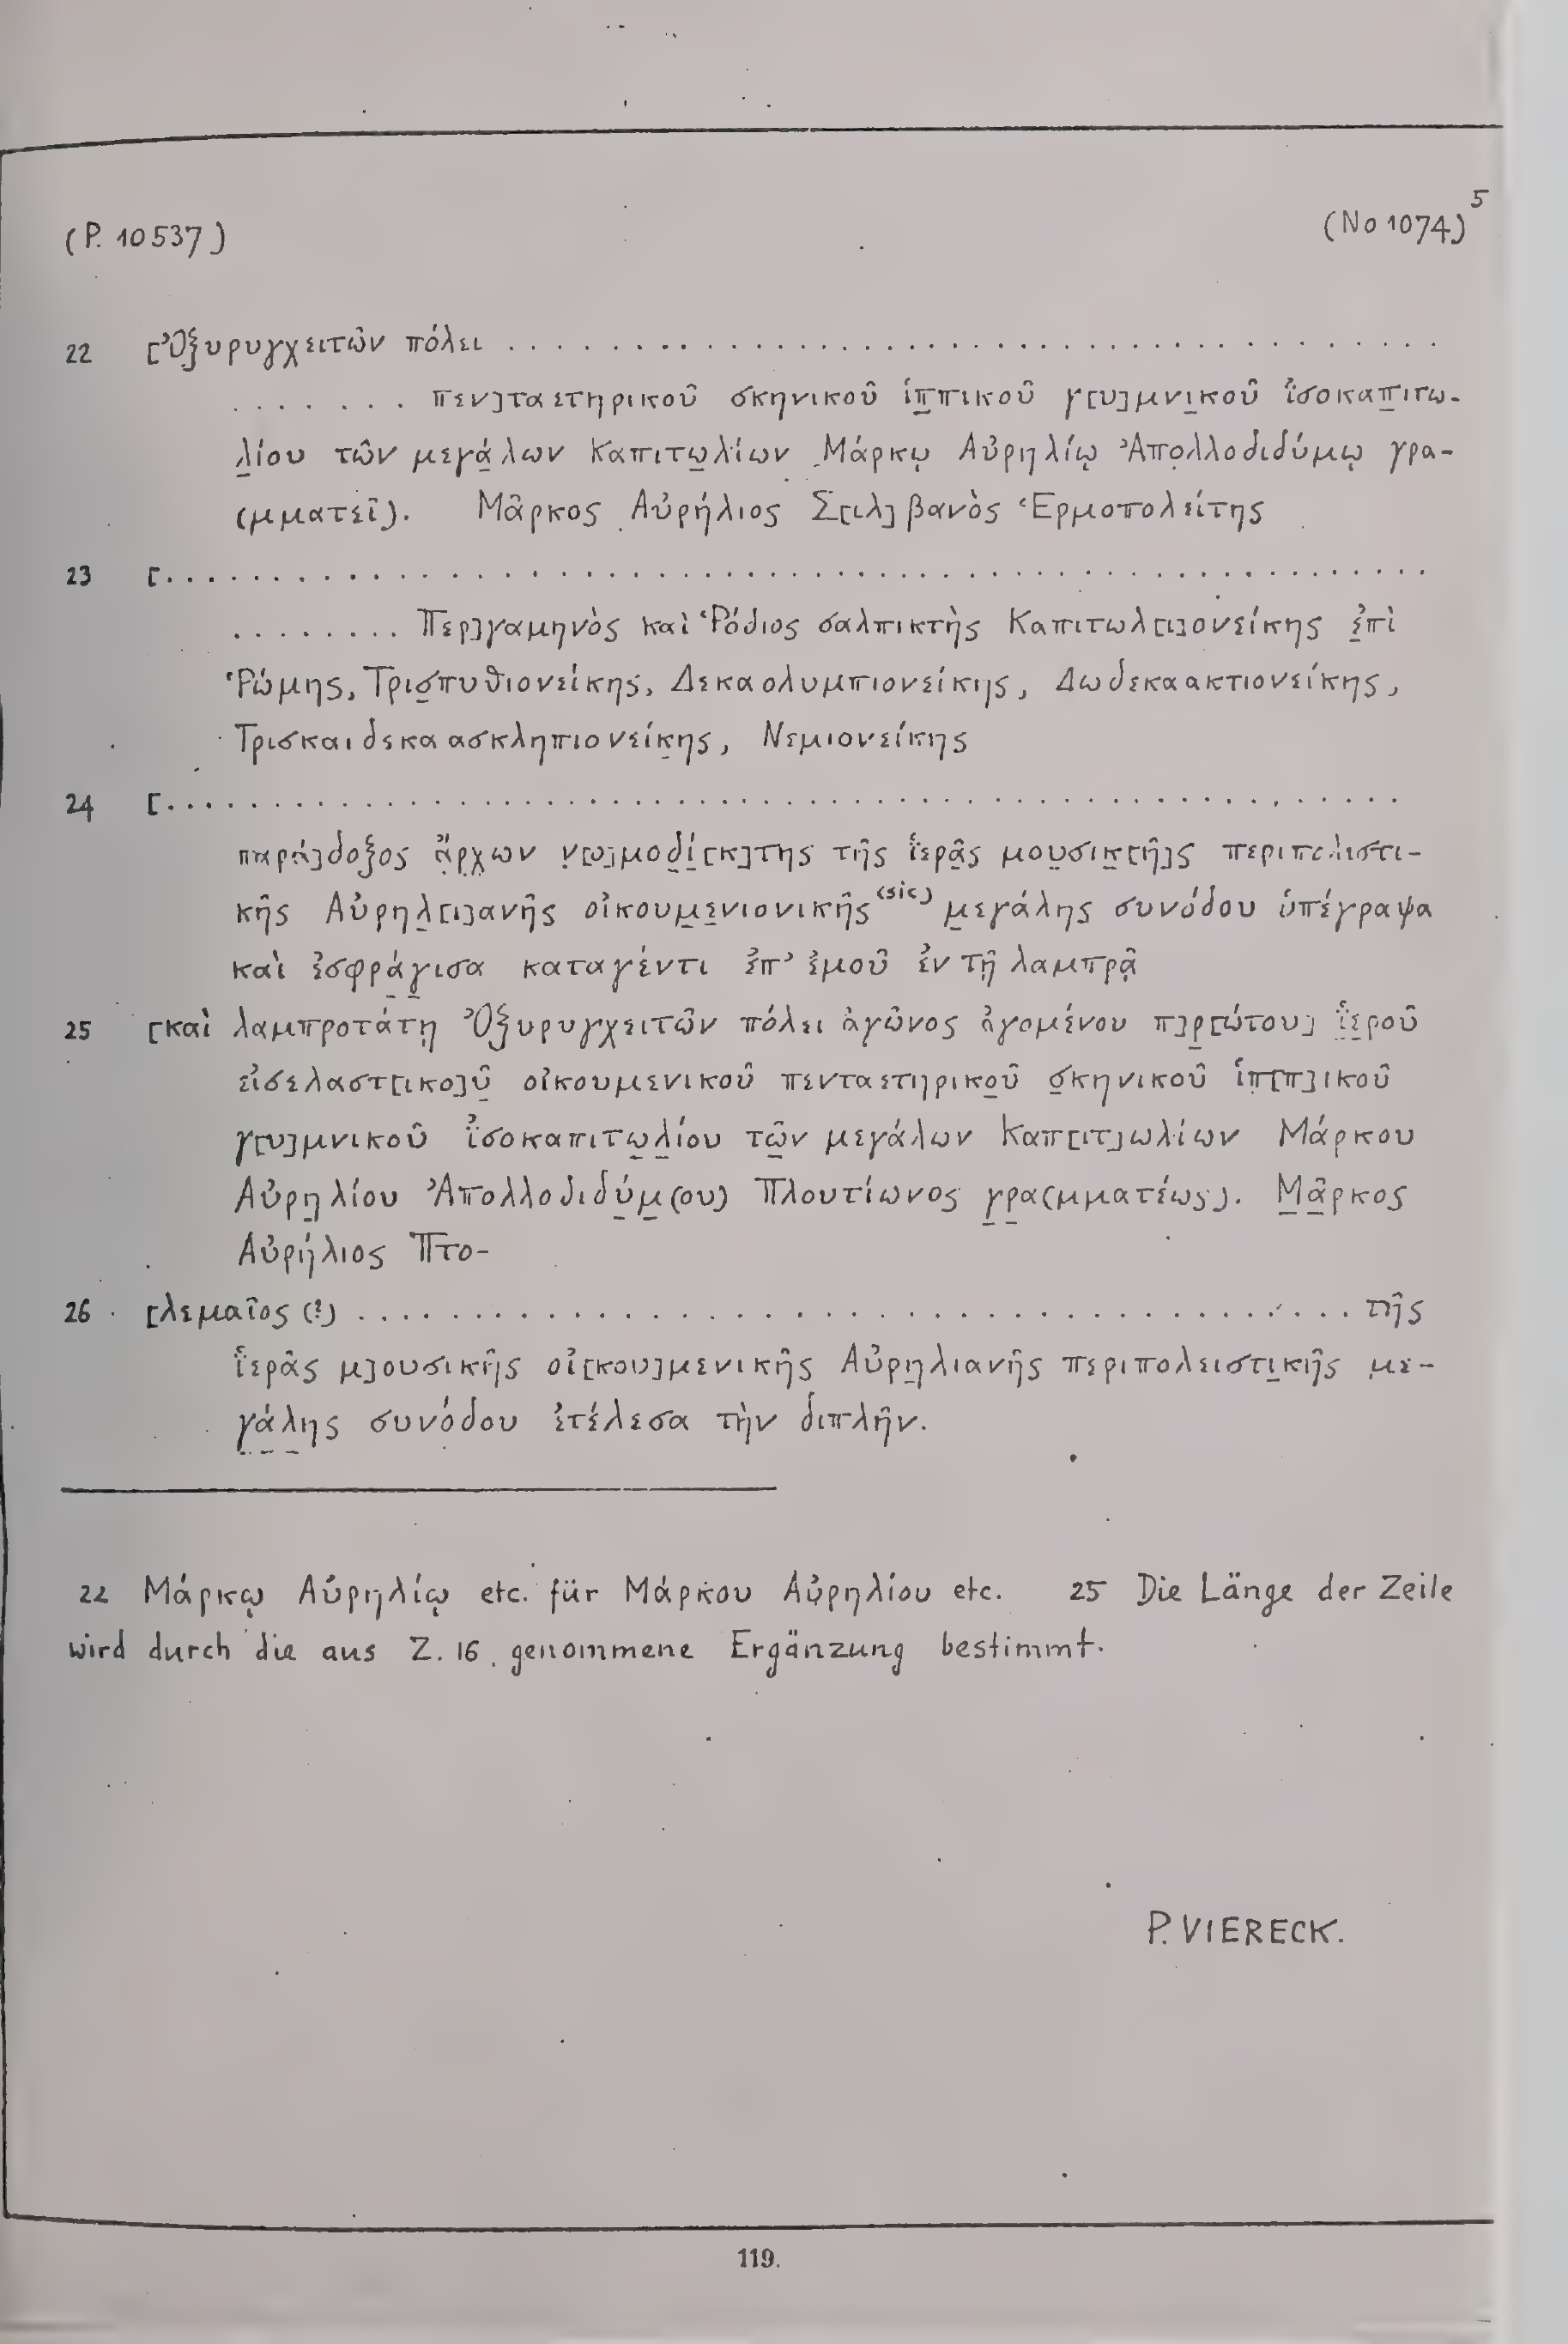 (P. 10537)
(No 1074)⁵
22 [Ὀξυρυγχειτῶν πόλει . . . . . . . . . . . . . . . . . . . . . . . . . . . . . . . . . . . . . . .
. . . . . . . πεν]ταετηρικοῦ σκηνικοῦ ἱπ̲πικοῦ γ[υ]μνι̲κοῦ ἰ̈σοκαπ̲ιτω-
λ̲ίου τῶν μεγά̲λων Καπιτω̲λίων Μάρκῳ Αὐρηλίῳ Ἀπο̣λλοδιδύμῳ γρα-
(μματεῖ). Μᾶρκος Αὐρήλιος Σ[ιλ]βανὸς Ἑρμοπολείτης
23 [. . . . . . . . . . . . . . . . . . . . . . . . . . . . . . . . . . . . . . . . . . . . . . . . . .
. . . . . . . . Περ]γαμηνὸς καὶ Ῥόδιος σαλπικτὴς Καπιτωλ[ι]ονείκης ἐ̲πὶ
Ῥώμης, Τρισ̲πυθιονείκης, Δεκαολυμπιονείκης, Δωδεκαακτιονείκης,
Τρισκαιδεκαασκληπιονείκ̲ης, Νεμιονείκης
24 [. . . . . . . . . . . . . . . . . . . . . . . . . . . . . . . . . . . . . . . . . . . . . . . . . .
παρά]δοξος ἄ̣ρχ̣ων ν̣[ο]μοδ̲ί̲[κ]της τῆς ἱ̈ερᾶ̲ς μου̲σικ̲[ῆ]ς περιπολιστι-
κῆς Αὐρηλ̲[ι]ανῆς οἰκουμ̲ε̲νιονικῆς (sic) μ̲εγάλης συνόδου ὑπέγραψα
καὶ ἐσφρά̲γ̲ισα καταγέντι ἐπ’ ἐμοῦ ἐν τῇ λαμπρᾷ
25 [καὶ λαμπροτάτῃ Ὀξυρυγχειτῶν πόλει ἀγῶνος ἀγομένου π]ρ̲[ώτου] ἱ̈ε̲ροῦ
εἰσελαστ[ικο]ῦ̲ οἰκουμενικοῦ πενταετηρικο̲ῦ σ̲κηνικοῦ ἱπ̲[π]ικοῦ
γ[υ]μνικοῦ ἰ̈σοκαπιτω̲λ̲ίου τῶ̲ν μεγάλων Καπ[ιτ]ωλίων Μάρκου
Αὐρη̲λίου Ἀπολλοδιδύ̲μ̲(ου) Πλουτίωνος γ̲ρ̲α(μματέως). Μ̲ᾶ̲ρκος
Αὐρήλιος Πτο-
26 [λεμαῖος (?) . . . . . . . . . . . . . . . . . . . . . . . . . . . . . . . . . . . . . τῆς
ἱ̈ερᾶς μ]ουσικῆς οἰ[κου]μενικῆς Αὐρη̲λιανῆς περιπολειστι̲κῆς με-
γ̲ά̲λ̲ης συνόδου ἐτέλεσα τὴν διπλῆν.
22 Μάρκῳ Αὐρηλίῳ etc. für Μάρκου Αὐρηλίου etc. 25 Die Länge der Zeile
wird durch die aus Z. 16. genommene Ergänzung bestimmt.
P. VIERECK.
119.